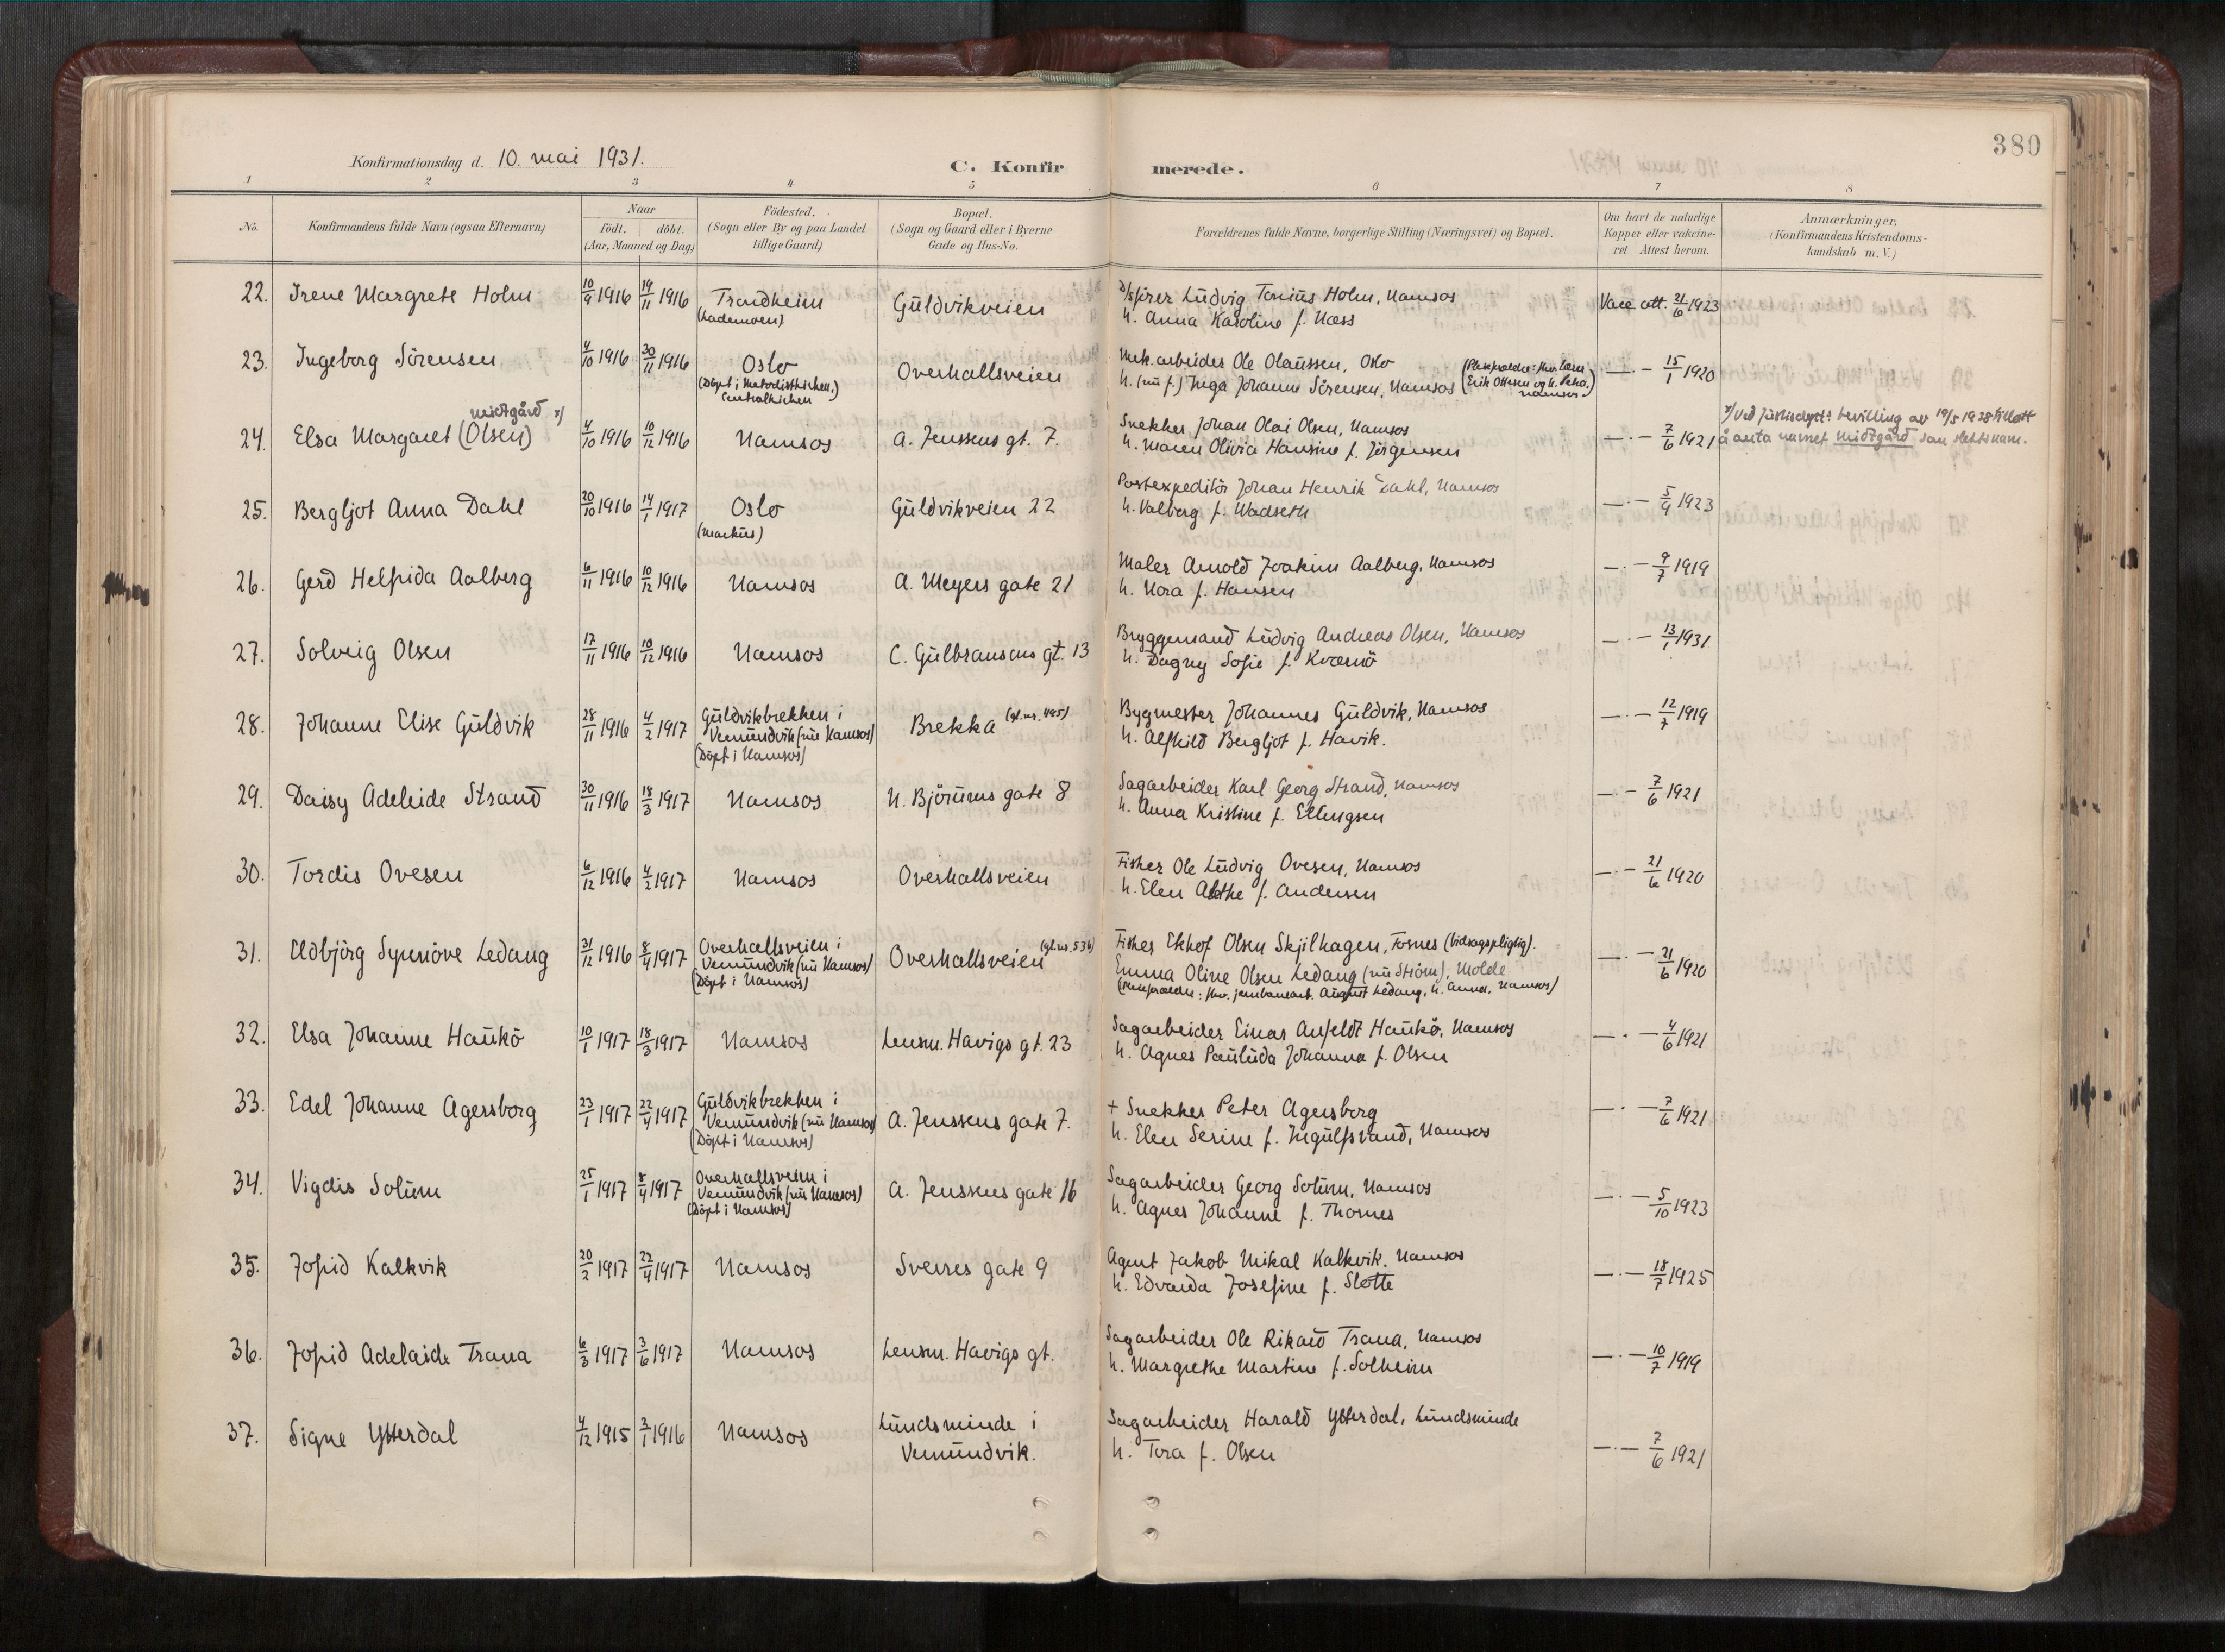 380
Konfirmationsdag d. 10. mai 1931.
C. Konfirmerede.
1 2 3 4 5 6 7 8
No. Konfirmandens fulde Navn (ogsaa Efternavn) Naar født. døbt. (Aar, Maaned og Dag) Fødested. (Sogn eller By og paa Landet tillige Gaard) Bopæl. (Sogn og Gaard eller i Byerne Gade og Hus-No. Forældrenes fulde Navne, borgerlige Stilling (Næringsvei) og Bopæl. Om havt de naturlige Kopper eller vakcineret. Attest herom. Anmærkninger. (Konfirmandens Kristendomskundskab m. V.)
22. Irene Margrete Holm 10/9 1916 19/11 1916 Trondheim Guldvikveien D/sfører Ludvig Tonius Holm, Namsos Vacc. att. 21/6 1923
(Lademoen) h. Anna Karoline f. Næss
23. Ingeborg Sörensen 4/10 1916 30/11 1916 Oslo Overhallsveien Mek. arbeider Ole Olaussen, Oslo — . — 15/1 1920
(Döpt i Metodistkirken, Centralkirken) h. (nu f.) Inga Johanne Sörensen, Namsos (Pleieforeldre: Erik Ottesen og h. Petra, Namsos.)
Midtgård x)
24. Elsa Margaret (Olsen) 4/10 1916 10/12 1916 Namsos A. Jenssens gt. 7. Snekker Johan Olai Olsen, Namsos — . — 7/6 1921 x) Ved Justisdept: bevilling av 19/5 1928 tillatt
h. Maren Olivia Hansine f. Jörgensen å anta navnet Midtgård som slektsnavn.
25. Bergljot Anna Dahl 20/10 1916 14/1 1917 Oslo Guldvikveien 22 Postexpeditör Johan Henrik Dahl, Namsos — . — 5/9 1923
(Markus) h. Valberg f. Wadseth
26. Gerd Helfrida Aalberg 6/11 1916 10/12 1916 Namsos A. Meyers gate 21 Maler Arnold Joakim Aalberg, Namsos — . — 9/7 1919
h. Nora f. Hansen
27. Solveig Olsen 17/11 1916 10/12 1916 Namsos C. Gulbransons gt. 13 Bryggemand Ludvig Andreas Olsen, Namsos — . — 13/1 1931
h. Dagny Sofie f. Kværnö
28. Johanne Elise Guldvik 28/11 1916 4/2 1917 Guldvikbrekken i Brekka (gl. nr. 495) Bygmester Johannes Guldvik, Namsos — . — 12/7 1919
Vemundvik (nu Namsos) h. Alfhild Bergljot f. Havik.
(Döpt i Namsos)
29. Daisy Adeleide Strand 30/11 1916 18/3 1917 Namsos N. Björums gate 8 Sagarbeider Karl Georg Strand, Namsos — . — 7/6 1921
h. Anna Kristine f. Ellingsen
30. Tordis Ovesen 6/12 1916 4/2 1917 Namsos Overhallsveien Fisker Ole Ludvig Ovesen, Namsos — . — 21/6 1920
h. Elen Alethe f. Andersen
31. Oldbjörg Synnöve Ledang 31/12 1916 8/4 1917 Overhallsveien i Overhallsveien (gl. nr. 536) Fisker Ekhof Olsen Skjilhagen, Fosnes (bidragspligtig). — . — 21/6 1920
Vemundvik (nu Namsos) Emma Oline Olsen Ledang (nu Ström), Molde
(Döpt i Namsos) (Pleieforældre: fhv. jernbanearb. August Ledang, h. Anna, Namsos)
32. Elsa Johanne Haukö 10/1 1917 18/3 1917 Namsos Lensm. Havigs gt. 23 Sagarbeider Einar Anfeldt Haukö, Namsos — . — 4/6 1921
h. Agnes Paulida Johanna f. Olsen
33. Edel Johanne Agersborg 23/1 1917 22/4 1917 Guldvikbrekken i A. Jenssens gate 7. + Snekker Peter Agersborg — . — 7/6 1921
Vemundvik (nu Namsos) h. Elen Serine f. Ingulfsvand, Namsos
(Döpt i Namsos)
34. Vigdis Solum 25/1 1917 8/4 1917 Overhallsveien i A. Jenssens gate 16 Sagarbeider Georg Solum, Namsos — . — 5/10 1923
Vemundvik (nu Namsos) h. Agnes Johanne f. Thornes
(Döpt i Namsos)
35. Jofrid Kalkvik 20/2 1917 22/4 1917 Namsos Sverres gate 9 Agent Jakob Mikal Kalkvik, Namsos — . — 18/7 1925
h. Edvarda Josefine f. Slotte
36. Jofrid Adelaide Trana 6/3 1917 3/6 1917 Namsos Lensm. Havigs gt. Sagarbeider Ole Rikard Trana, Namsos — . — 10/7 1919
h. Margrethe Martine f. Solheim
37. Signe Ytterdal 4/12 1915 2/1 1916 Namsos Lundsminde i Sagarbeider Harald Ytterdal, Lundsminde — . — 7/6 1921
Vemundvik. h. Tora f. Olsen